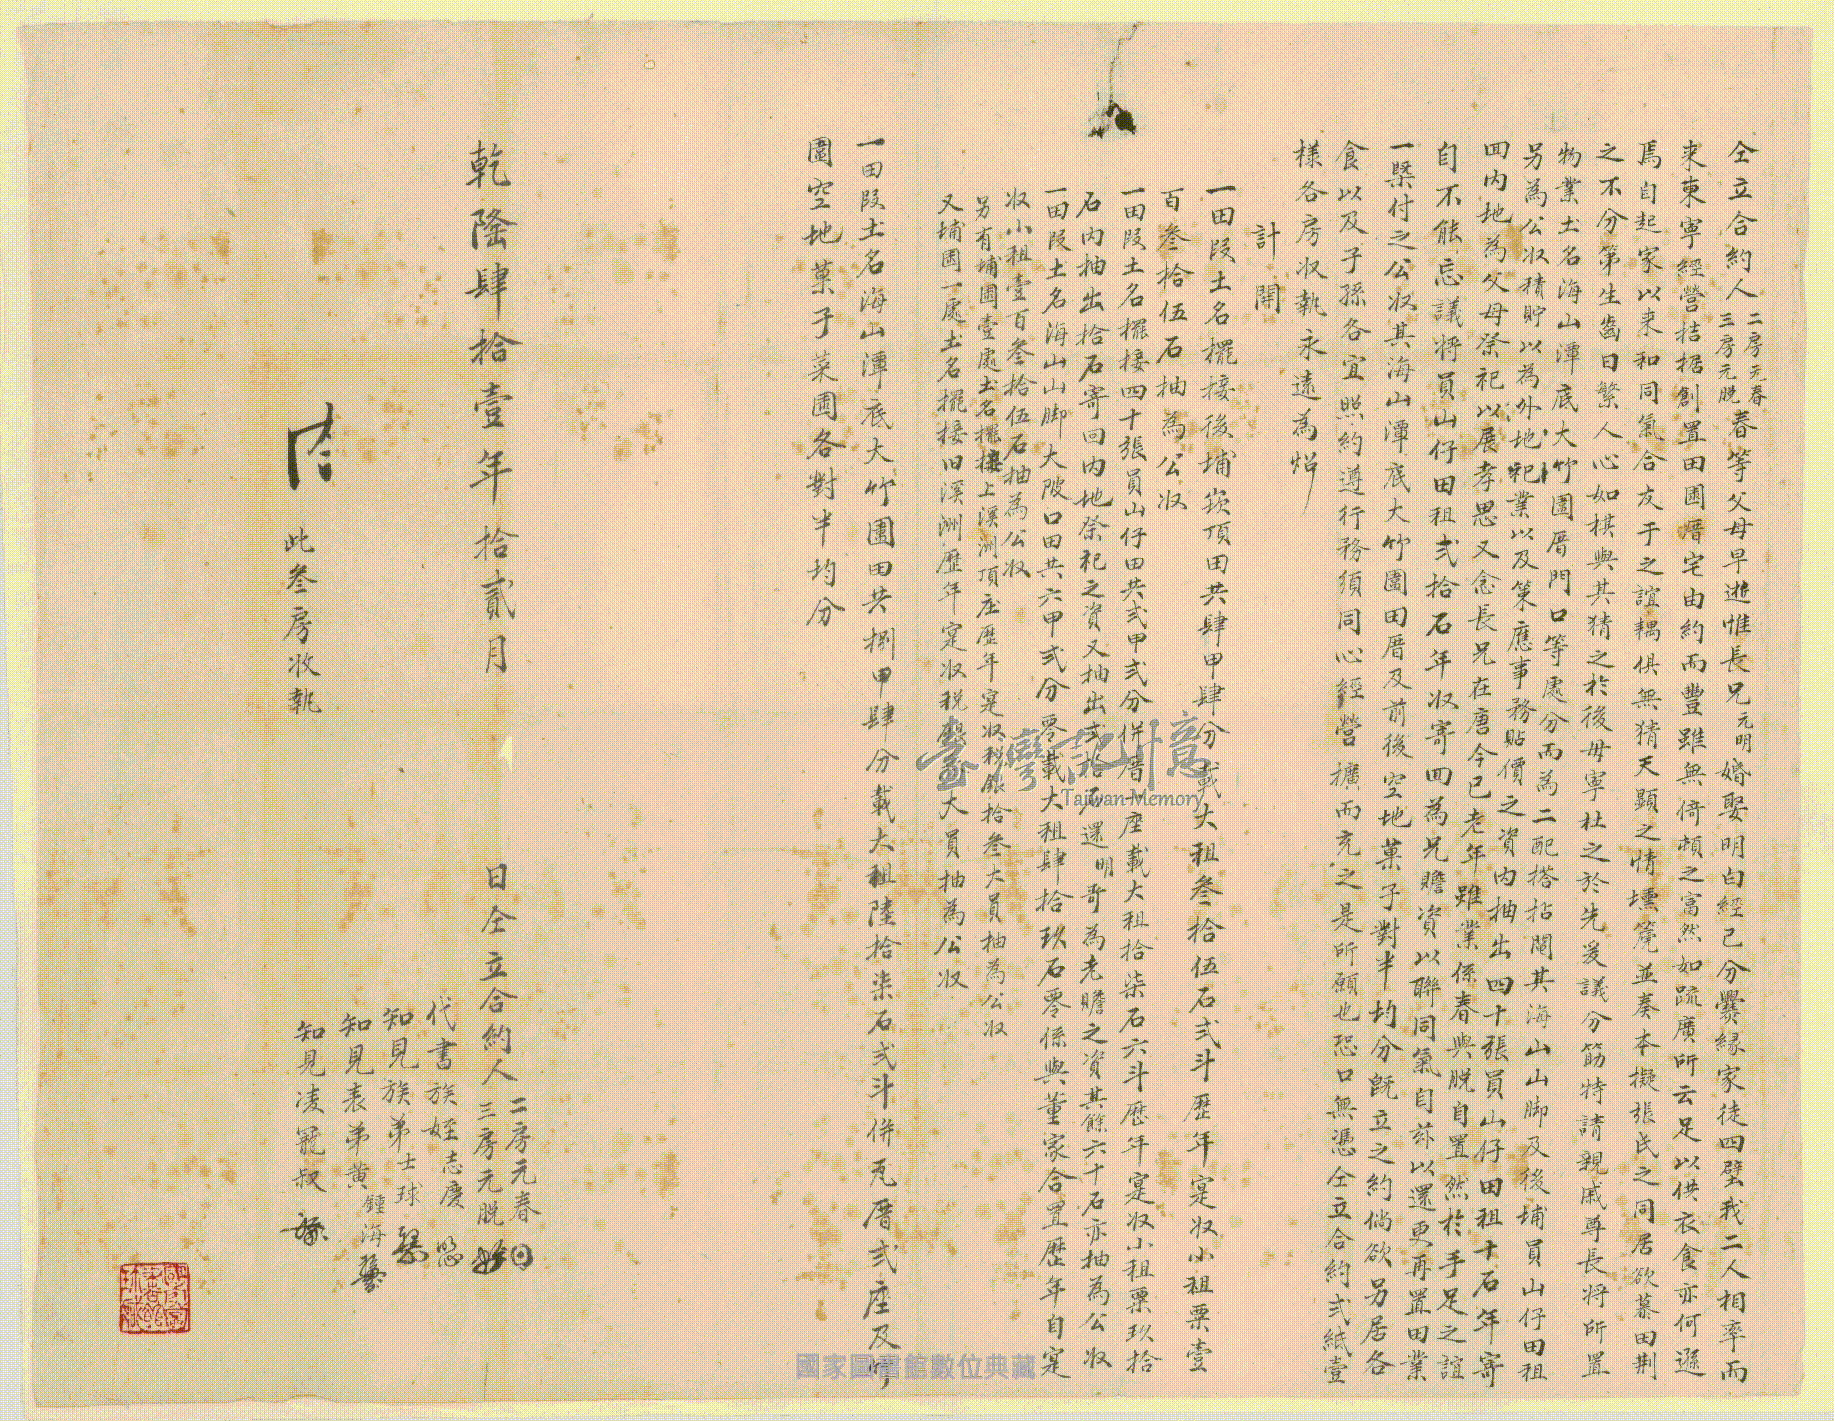 仝立合約人二房元春三房元脱春等父母早逝惟長兄元明婚娶明白經已分爨緣家徒四壁我二人相率而
来東寧經營拮据創置田園厝宅由約而豐雖無倚頓之富然如疏廣所云足以供衣食亦何遜
焉自起家以来和同氣合友于之誼耦俱無猜天顯之情壎箎並奏本擬張氏之同居欲慕田荆
之不分第生齒日繁人心如棋與其猜之於後毋寧杜之於先爰議分筋特請親戚尊長将所置
物業土名海山潭底大竹圍厝門口等處分而為二配搭拈鬮其海山山脚及後埔員山仔田租
另為公収積貯以為外地祀業以及策應事務貼價之資内抽出四十張員山仔田租十石年寄
回内地為父母祭祀以展孝思又念長兄在唐今已老年雖業係春與脱自置然於手足之誼
自不能忘議将員山仔田租弍拾石年収寄回為兄贍資以聯同氣自茲以還更再置田業
一槩付之公収其海山潭底大竹圍田厝及前後空地菓子對半均分既立之約倘欲另居各
食以及子孫各宜照約遵行務須同心經營擴而充之是所願也恐口無憑仝立合約弍紙壹
様各房収執永遠為炤
計開
一田段土名擺接後埔崁頂田共肆甲肆分載大租叁拾伍石弍斗歷年寔収小租粟壹
百叁拾伍石抽為公収
一田段土名擺接四十張員山仔田共弍甲弍分併厝一座載大租拾柒石六斗歷年寔収小租粟玖拾
石内抽出拾石寄回内地祭祀之資又抽出弍拾石還明哥為老贍之資其餘六十石亦抽為公収
一田段土名海山山脚大陂口田共六甲弍分零載大租肆拾玖石零係與董家合置歷年自寔
収小租壹百叁拾伍石抽為公収
另有埔園壹處土名擺接上溪洲頂庄歷年寔収税銀拾叁大員抽為公収
又埔園一處土名擺接旧溪洲歷年寔収税銀大員抽為公収
一田段土名海山潭底大竹圍田共捌甲肆分載大租陸拾柒石弍斗併瓦厝弍座及竹
圍空地菓子菜園各對半均分
乾隆肆拾壹年拾貳月 日仝立合約人二房元春三房元脱
代書族姪志慶
知見族弟士球
知見表弟黄鍾海
知見凌寵叔
此叁房収執
臺灣記憶
Taiwan Memory
國家圖書館數位典藏